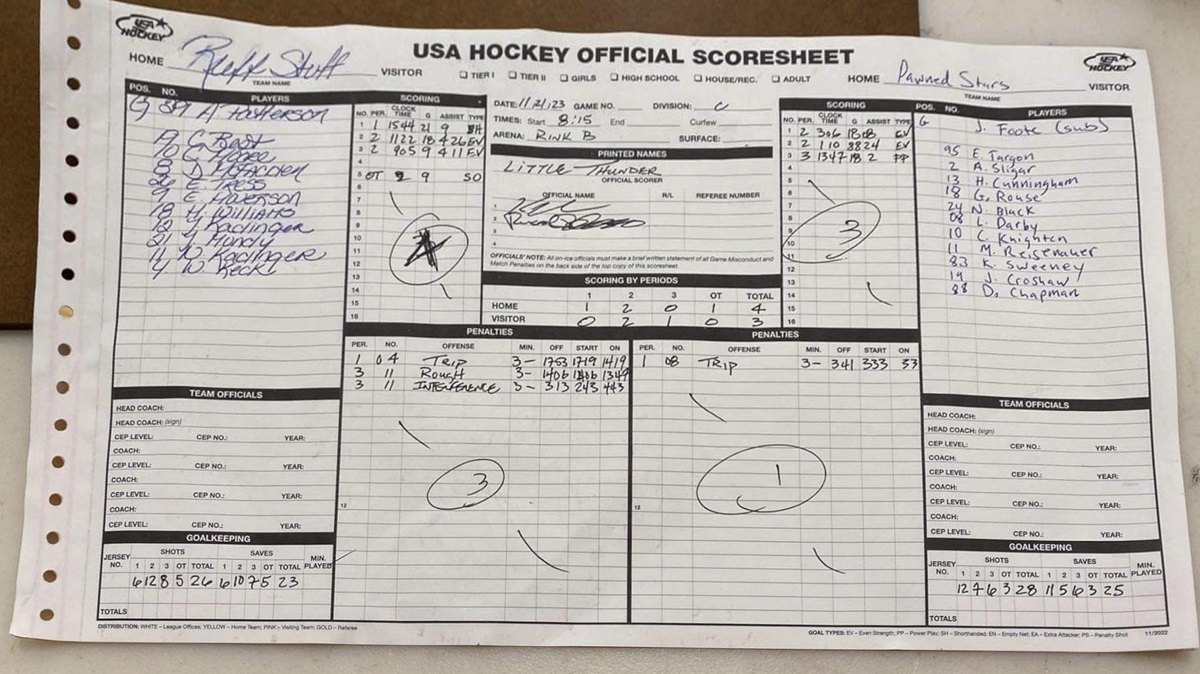 USA HOCKEY
USA HOCKEY
USA HOCKEY OFFICIAL SCORESHEET
HOME Ruff Stuff VISITOR
TEAM NAME
TIER I TIER II GIRLS HIGH SCHOOL HOUSE/REC. ADULT
HOME Pawned Stars VISITOR
TEAM NAME
POS. NO. PLAYERS
G 89 A
9 C
10 C
8 D
26 E. Tress
9 E.
18 H. Williams
12 Kadlinger
21 Hundy
11 Kadlinger
4 W Beck
SCORING
NO. PER. CLOCK TIME G ASSIST TYPE
1 1 1544 21 9 SH
2 2 1122 18 4 26 EV
3 2 905 9 4 11 EV
4
5 OT 9 SO
6
7
8
9
10
11
12
13
14
15
16
DATE: 11/21/23 GAME NO. DIVISION: C
TIMES: Start 8:15 End Curfew
ARENA: RINK B SURFACE:
PRINTED NAMES
LITTLE THUNDER
OFFICIAL SCORER
OFFICIAL NAME R/L REFEREE NUMBER
1
2
3
4
OFFICIALS' NOTE: All on-ice officials must make a brief written statement of all Game Misconduct and
Match Penalties on the back side of the top copy of this scoresheet.
SCORING BY PERIODS
1 2 3 OT TOTAL
HOME 1 2 0 1 4
VISITOR 0 2 1 0 3
SCORING
NO. PER. CLOCK TIME G ASSIST TYPE
1 2 306 18 08 EV
2 2 110 88 24 EV
3 3 1347 18 2 PP
4
5
6
7
8
9
10
11
12
13
14
15
16
3
POS. NO. PLAYERS
G J. Foote (sub)
95 E. Targon
2 A. Sligar
13 H. Cunningham
18 G. Rouse
24 N. Black
08 L. Darby
10 C. Knighten
11 M. Reisenauer
83 K. Sweeney
19 J. Croshaw
88 D. Chapman
PENALTIES
PER. NO. OFFENSE MIN. OFF START ON
1 04 TRIP 3- 1753 1719 1419
3 11 ROUGH 3- 1406 1406 1347
3 11 INTERFERENCE 3- 313 243 443
3
12
PENALTIES
PER. NO. OFFENSE MIN. OFF START ON
1 08 TRIP 3- 341 333 33
1
12
TEAM OFFICIALS
HEAD COACH:
HEAD COACH: (sign)
CEP LEVEL: CEP NO.: YEAR:
COACH:
CEP LEVEL: CEP NO.: YEAR:
COACH:
CEP LEVEL: CEP NO.: YEAR:
COACH:
CEP LEVEL: CEP NO.: YEAR:
GOALKEEPING
JERSEY NO. SHOTS SAVES MIN. PLAYED
1 2 3 OT TOTAL 1 2 3 OT TOTAL
6 12 8 5 26 6 10 7 5 23
TOTALS
TEAM OFFICIALS
HEAD COACH:
HEAD COACH: (sign)
CEP LEVEL: CEP NO.: YEAR:
COACH:
CEP LEVEL: CEP NO.: YEAR:
COACH:
CEP LEVEL: CEP NO.: YEAR:
COACH:
CEP LEVEL: CEP NO.: YEAR:
GOALKEEPING
JERSEY NO. SHOTS SAVES MIN. PLAYED
1 2 3 OT TOTAL 1 2 3 OT TOTAL
12 7 6 3 28 11 5 6 3 25
TOTALS
DISTRIBUTION: WHITE – League Offices; YELLOW – Home Team; PINK – Visiting Team; GOLD – Referee
GOAL TYPES: EV – Even Strength; PP – Power Play; SH – Shorthanded; EN – Empty Net; EA – Extra Attacker; PS – Penalty Shot 11/2022